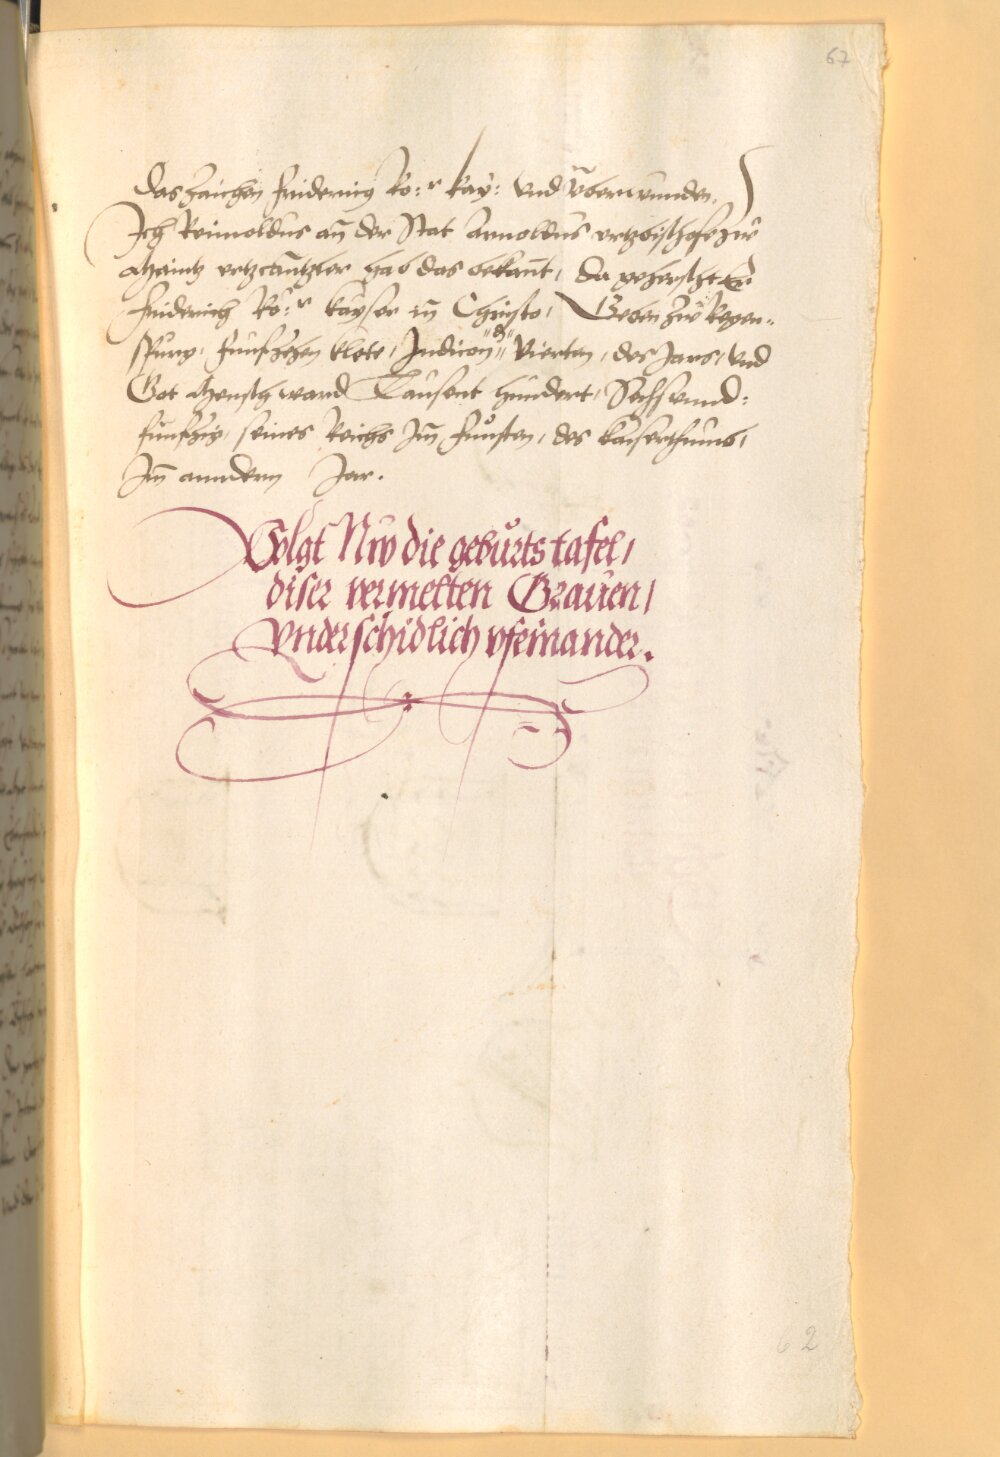 67
Das Zaichen Friderric Rö: r kay: vnd Vberwunden.
Ich Reinoldus an der Stat Arnoldus ertzbischofe zue
Maintz ertzcantzler hab das bekant, da geherschet
Friderich Rö: r kayser in Christo, Geben zue Regen=
spurg, Funfzehen klote, Indicion der Vierten, des Jars, vnd
Got Mensch ward Tausent hundert, Sechs vnnd=
funfzig, seines Reichs Im funften, des kaiserthums,
Im anndern Jar.
Volgt Nw die geburts tafel,
diser vermelten Grauen,
vnderschidlich vfeinander.
62